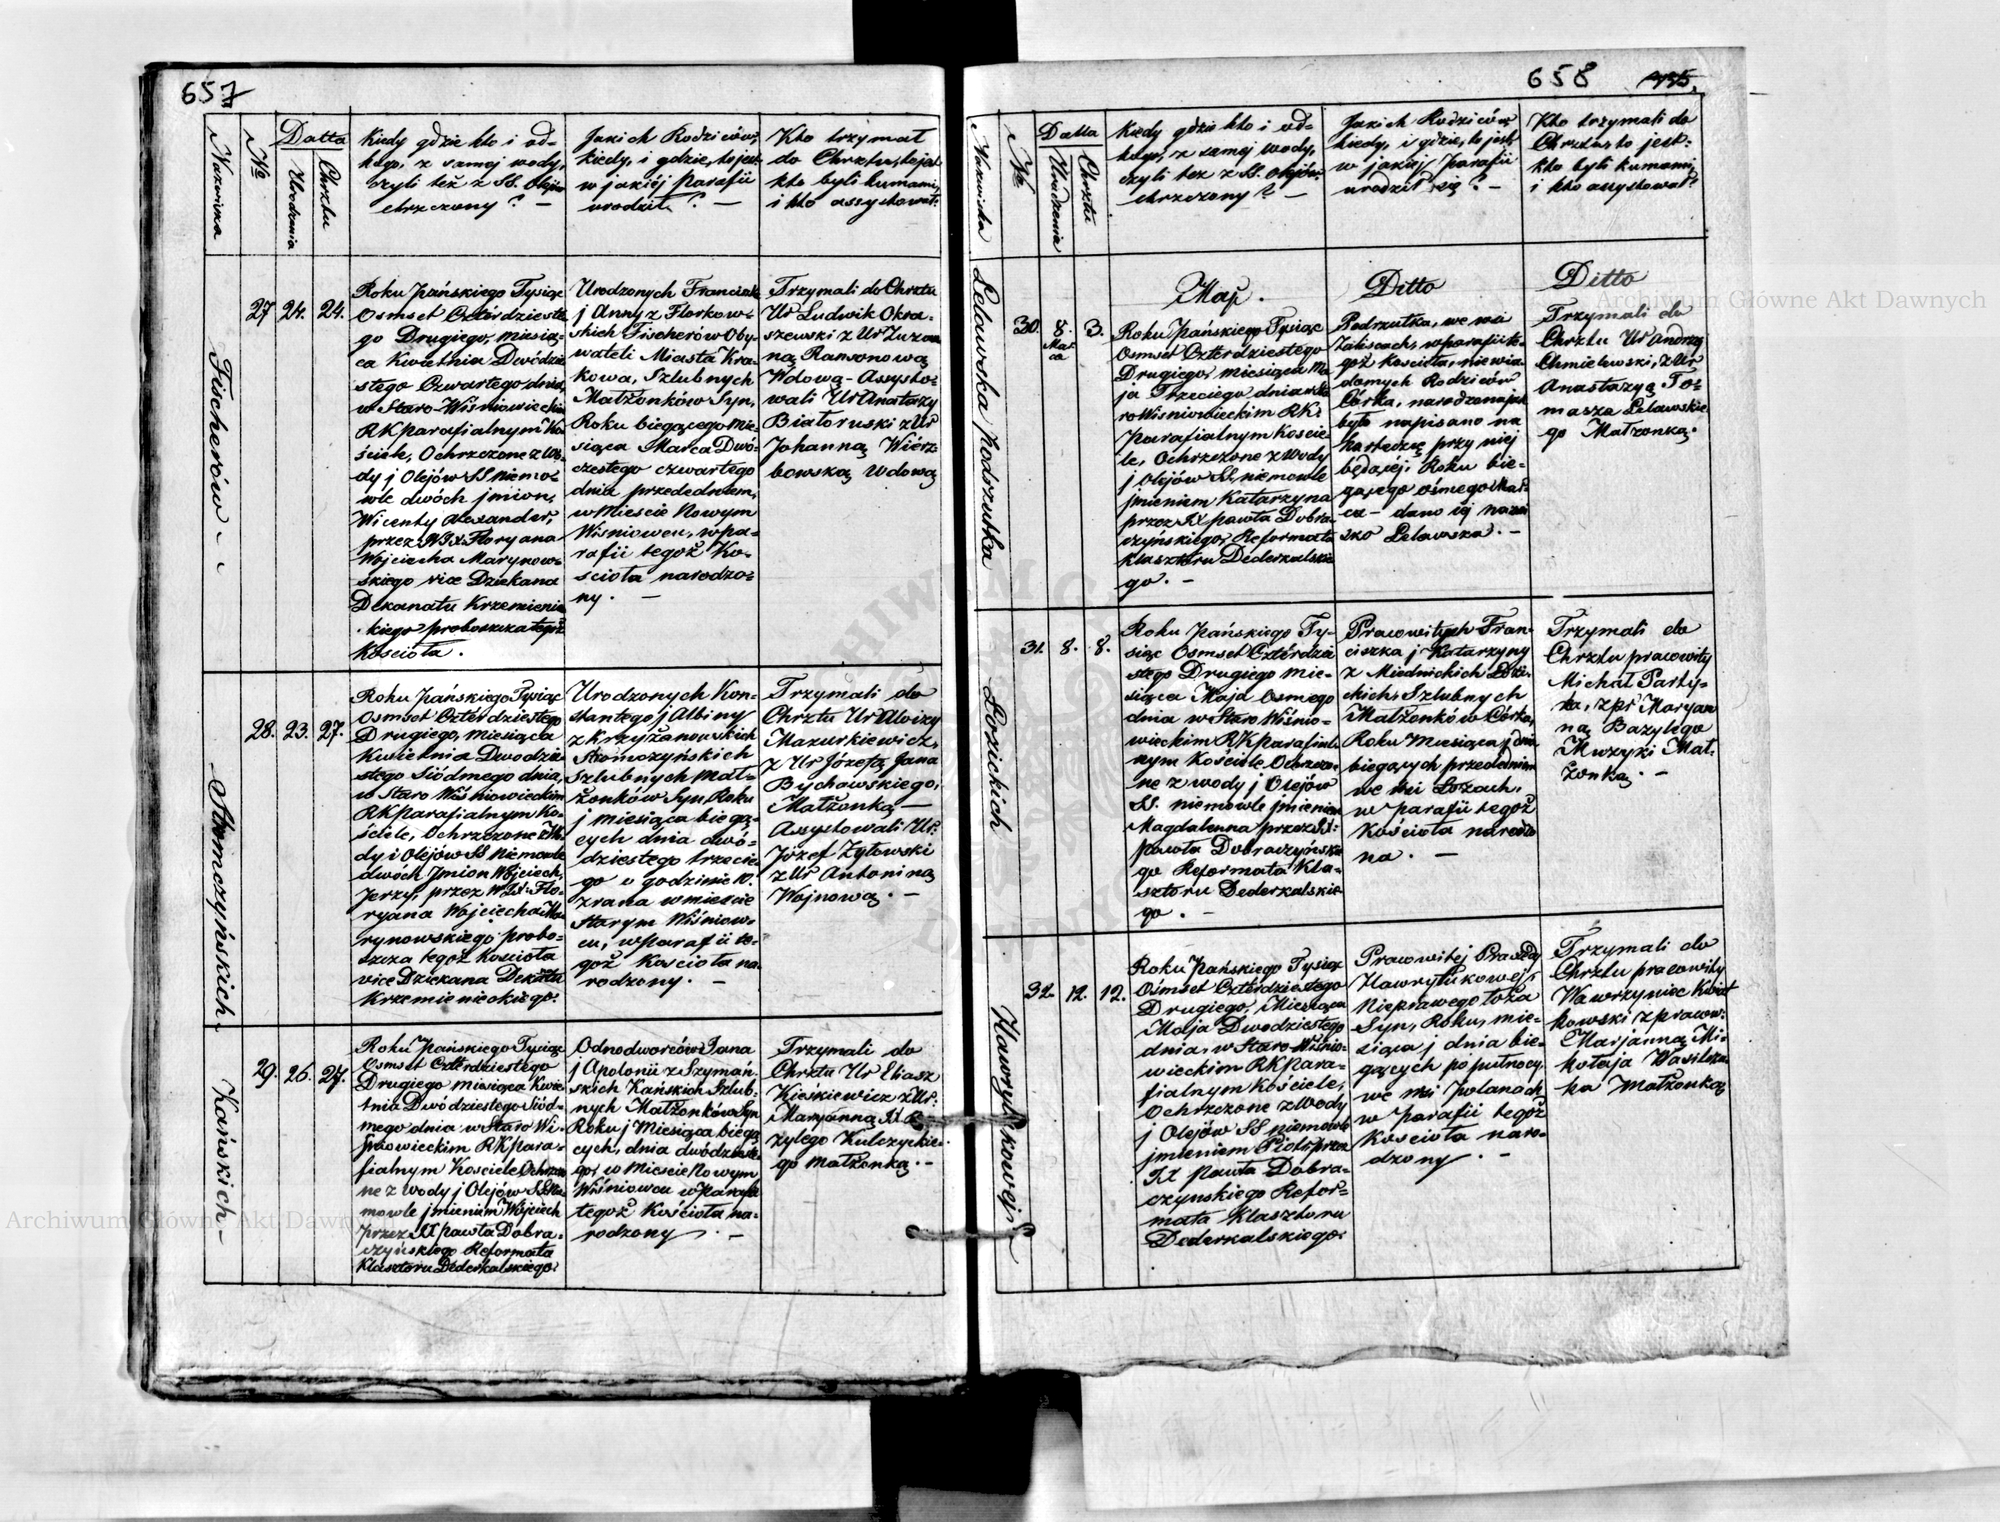 657
Nazwiska
No
Datta
Urodzenia
Chrztu
Kiedy gdzie kto i od-
kogo, z samej wody,
czyli też z SS. Olejów
chrzczony? —
Jakich Rodziców,
kiedy, i gdzie, to jest
w jakiéj Parafii
urodził? —
Kto trzymał
do Chrztu, to jest
kto byli kumami,
i kto assystował?
Fischerów
27. 24. 24.
Roku Pańskiego Tysiąc
Osmset Czterdzieste
go Drugiego, miesią-
ca Kwietnia Dwódzie
stego Czwartego dnia,
w Staro-Wiśniowieckim
RK parafialnym Ko
ściele, Ochrzczone z Wo
dy j Olejów SS niemo-
wle dwóch jmion,
Wicenty Alexander,
przez JX Floryana
Wojciecha Marynow-
skiego vice Dziekana
Dekanatu Krzemienie
kiego proboszcza tegoż
Kościoła.
Urodzonych Franciszka
j Anny z Florkow-
skich Fischerów Oby-
wateli Miasta Kra-
kowa, Szlubnych
Małżonków Syn,
Roku biegącego Mie-
siąca Marca Dwó-
czestego czwartego
dnia przededniem,
w Mieście Nowym
Wiśniowcu, w pa-
rafii tegoż Ko-
ścioła narodzo-
ny. —
Trzymali do Chrztu
Ur Ludwik Okra-
szewski z Ur Zuzan-
ną Ramsonową
Wdową – Assysto-
wali Ur Anatazy
Białoruski z Ur
Johanną Wierz-
bowską Wdową
Stromczyńskich
28. 23. 27.
Roku Pańskiego Tysiąc
Osmset Czterdziestego
Drugiego, miesiąca
Kwietnia Dwodzie-
stego Siódmego dnia,
w Staro Wiśniowieckim
RK parafialnym Ko-
ściele, Ochrzczone z Wo-
dy i Olejów SS Niemowle
dwóch Jmion Wojciech,
Jerzy, przez W JX Flo-
ryana Wojciecha Ma
rynowskiego probo-
szcza tegoż Kościoła
vice Dziekana Dekntu
Krzemienieckiego.
Urodzonych Kon-
stantego j Albiny
z Krzyżanowskich
Stromczyńskich
Szlubnych Mał-
żonków Syn, Roku
j miesiąca biegą-
cych dnia dwó-
dziestego trzecie-
go o godzinie 10.
z rana w mieście
Starym Wiśniow-
cu, w parafii te-
goż Kościoła na-
rodzony. —
Trzymali do
Chrztu Ur Aloizy
Mazurkiewicz,
z Ur Józefą Jana
Bychawskiego,
Małżonką —
Assystowali Ur:
Józef Żytowski
z Ur Antoniną
Wojnową. —
Kańskich
29. 26. 27.
Roku Pańskiego Tysiąc
Osmset Czterdziestego
Drugiego miesiąca Kwie-
tnia Dwódziestego Siód-
mego dnia w Staro Wi-
śniowieckim RK para-
fialnym Kościele Ochrzczo
ne z wody j Olejów SS Nie
mowle jmieniem Wojciech
przez JX Pawła Dobra-
czyńskiego Reformata
Klasztoru Dederkalskiego.
Odnodworców Jana
j Apolonii z Szymań-
skich Kańskich Szlub-
nych Małżonków Syn
Roku j Miesiąca biegą
cych, dnia dwódzieste
go, w Mieście Nowym
Wiśniowcu w Parafii
tegoż Kościoła na-
rodzony. —
Trzymali do
Chrztu Ur Eliasz
Kieskiewicz z Ur:
Maryanną
zylego Kulczyckie-
go małżonką. —
658
Nazwiska
No
Datta
Urodzenia
Chrztu
Kiedy gdzie kto i od-
kogo, z samej wody,
czyli tez z SS. olejów
chrzczony? —
Jakich Rodziców,
kiedy, i gdzie, to jest,
w jakiéj Parafii
urodził się? —
Kto trzymali do
Chrztu, to jest:
kto byli kumami,
i kto assystował?
Lelawska Podrzutka
Maj.
Ditto
Ditto
30. 8. Mar
ca 3.
Roku Pańskiego Tysiąc
Osmset Czterdziestego
Drugiego, miesiąca Ma
ja Trzeciego dnia w Sta
ro Wiśniowieckim RK:
Parafialnym Koście-
le, Ochrzczone z Wody
j Olejów SS, niemowle
jmieniem Katarzyna
przez JX Pawła Dobra-
czyńskiego, Reformata
Klasztoru Dederkalskie
go. —
Podrzutka, we wsi
Zaliscach, w parafii te-
goż Kościoła, niewia-
domych Rodziców
Córka, narodzona jak
było napisano na
kartedzce przy niej
będącej, Roku bie-
gącego ośmego Mar-
ca – dano iej nazwi
sko Lelawska. —
Trzymali do
Chrztu Ur Andrzej
Chmielewski, z Ur
Anastazyą To-
masza Lelawskie
go Małżonką.
Łozickich
31. 8. 8.
Roku Pańskiego Ty-
siąc Osmset Czterdzie
stego Drugiego Mie-
siąca Maja Osmego
dnia w Staro Wiśnio-
wieckim RK parafial-
nym Kościele Ochrzczo-
ne z wody j Olejów
SS. niemowle jmieniem
Magdalenna przez JX:
Pawła Dobraczyńskie
go Reformata Kla-
sztoru Dederkalskie
go. —
Pracowitych Fran-
ciszka j Katarzyny
z Miednickich Łozi-
ckich, Szlubnych
Małżonków Córka,
Roku Miesiąca j dnia
biegących przededniem
we wsi Łozach,
w parafii tegoż
Kościoła narodzo
na. —
Trzymali do
Chrztu pracowity
Michał Party-
ka, z pr Maryan
ną Bazylego
Muzyki Mał-
żonką. —
Hawrylukowej
32. 12. 12.
Roku Pańskiego Tysiąc
Ośmset Czterdziestego
Drugiego, Miesiąca
Maja Dwodziestego
dnia, w Staro-Wiśnio-
wieckim RK Para-
fialnym Kościele,
Ochrzczone z Wody
j Olejów SS niemowle
jmieniem Piotr przez
JX Pawła Dobra-
czyńskiego Refor-
mata Klasztoru
Dederkalskiego.
Pracowitej Praxedy
Hawrylukowej,
Nieprawego łoża
Syn, Roku, mie-
siąca j dnia bie-
gących po pułnocy,
we wsi Polanach
w Parafii tegoż
Kościoła naro-
dzony. —
Trzymali do
Chrztu pracowity
Wawrzyniec Kwiat
kowski z pracow:
Marjanną Mi-
kołaja Wasilcza
ka Małżonką
Archiwum Główne Akt Dawnych
Archiwum Główne Akt Dawnych